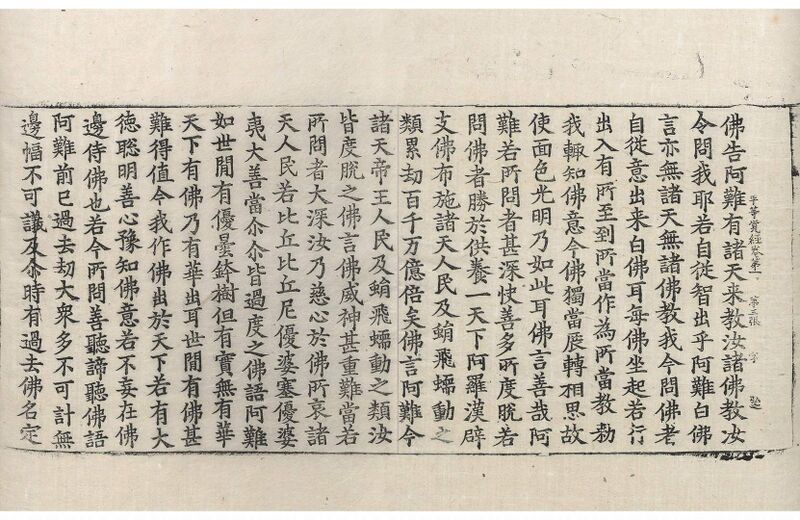 佛告阿難有諸天来教汝諸佛教汝
平等覺經卷第一 第三張 字
令問我耶若自従智出乎阿難白佛
言亦無諸天無諸佛教我今問佛者
自従意出来白佛耳每佛坐起若行
出入有所至到所當作為所當教勑
我輙知佛意今佛獨當展轉相思故
使面色光明乃如此耳佛言善哉阿
難若所問者甚深快善多所度脫若
問佛者勝於供養一天下阿羅漢辟
支佛布施諸天人民及蜎飛蠕動之
類累劫百千万億倍矣佛言阿難今
諸天帝王人民及蜎飛蠕動之類汝
皆度脫之佛言佛威神甚重難當若
所問者大深汝乃慈心於佛所哀諸
天人民若比丘比丘尼優婆塞優婆
夷大善當尒尒皆過度之佛語阿難
如世閒有優曇鉢樹但有實無有華
天下有佛乃有華出耳世閒有佛甚
難得值今我作佛出於天下若有大
徳聡明善心豫知佛意若不妄在佛
邊侍佛也若今所問善聽諦聽佛語
阿難前已過去劫大衆多不可計無
邊幅不可議及尒時有過去佛名定